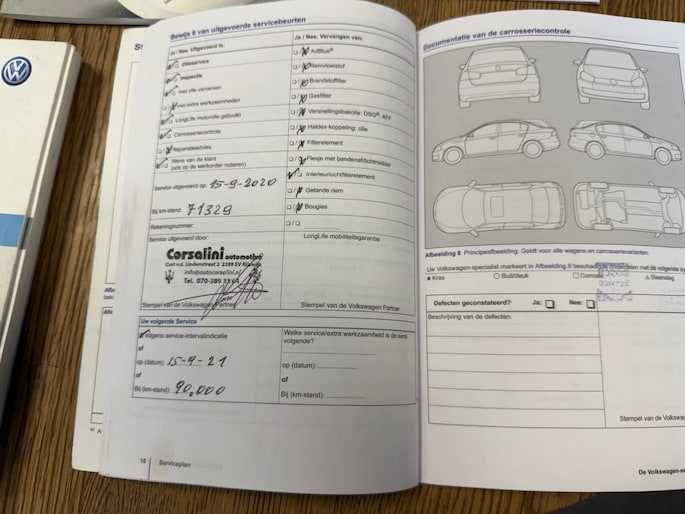 Bewijs 6 van uitgevoerde servicebeurten
Ja / Nee. Uitgevoerd is:
Olieservice
Inspectie
met olie verversen
met extra werkzaamheden
LongLife motorolie gebruikt
Carrosseriecontrole
Reparatieadvies
Wens van de klant
(ook op de werkorder noteren)
Service uitgevoerd op: 15-9-2020
Bij km-stand: 71329
Rekeningnummer:
Service uitgevoerd door:
Corsalini automotive
Cort v.d. Lindenstraat 2 2288 EV Rijswijk
info@autocorsalini.nl
Tel. 070-389
Stempel van de Volkswagen Partner
Ja / Nee. Vervangen van:
AdBlue®
Remvloeistof
Brandstoffilter
Gasfilter
Versnellingsbakolie: DSG®, ATF
Haldex-koppeling: olie
Filterelement
Flesje met bandenafdichtmiddel
Interieurluchtfilterelement
Getande riem
Bougies
LongLife mobiliteitsgarantie:
Stempel van Volkswagen Partner
Uw volgende Service
Volgens service-intervalindicatie
of
op (datum): 15-9-21
of
Bij (km-stand): 90.000
Welke service/extra werkzaamheid is de eerst-
volgende?
op (datum):
of
Bij (km-stand):
16 Serviceplan
Documentatie van de carrosseriecontrole
Afbeelding 8 Principeafbeelding. Geldt voor alle wagens en carrosserievarianten.
Uw Volkswagen-specialist markeert in Afbeelding 8 beschadigde onderdelen met de volgende
Kras Buil/deuk Corrosie Steenslag
Defecten geconstateerd? Ja: Nee:
Beschrijving van de defecten:
Stempel van de Volkswagen
De Volkswagen-se